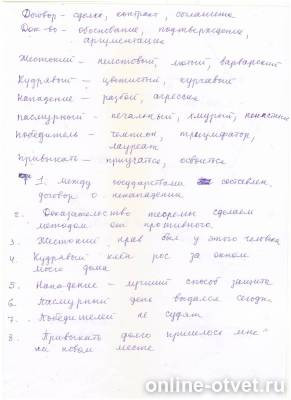 Договор – сделка, контракт, соглашение
Док-во – обоснование, подтверждение,
аргументация
Жестокий – неистовый, лютый, варварский
Кудрявый – цветистый, курчавый
Нападение – разбой, агрессия
пасмурный – печальный, хмурый, ненастный
победитель – чемпион, триумфатор,
лауреат
привыкать – приучатся, освоится
1. между государствами составлен
договор о ненападении.
2. Доказательство теоремы сделаем
методом от противного.
3. Жестокий нрав был у этого человека
4. Кудрявый клён рос за окном
моего дома
5. Нападение – лучший способ защиты
6. Пасмурный день выдался сегодня
7. Победителей не судят
8. Привыкать долго пришлось мне
на новом месте
online-otvet.ru